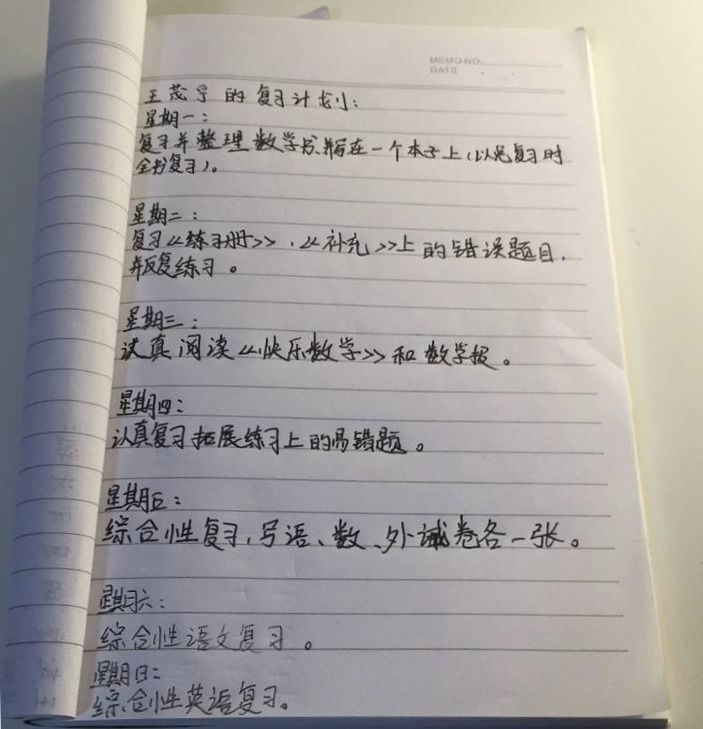 MEMO NO.
DATE
王茂宇的复习计划:
星期一:
复习并整理数学书,并写在一个本子上(以免复习时
全书复习)。
星期二:
复习《练习册》、《补充》上的错误题目,
并反复练习。
星期三:
认真阅读《快乐数学》和数学报。
星期四:
认真复习拓展练习上的易错题。
星期五:
综合性复习,写语、数、外试卷各一张。
星期六:
综合性语文复习。
星期日:
综合性英语复习。